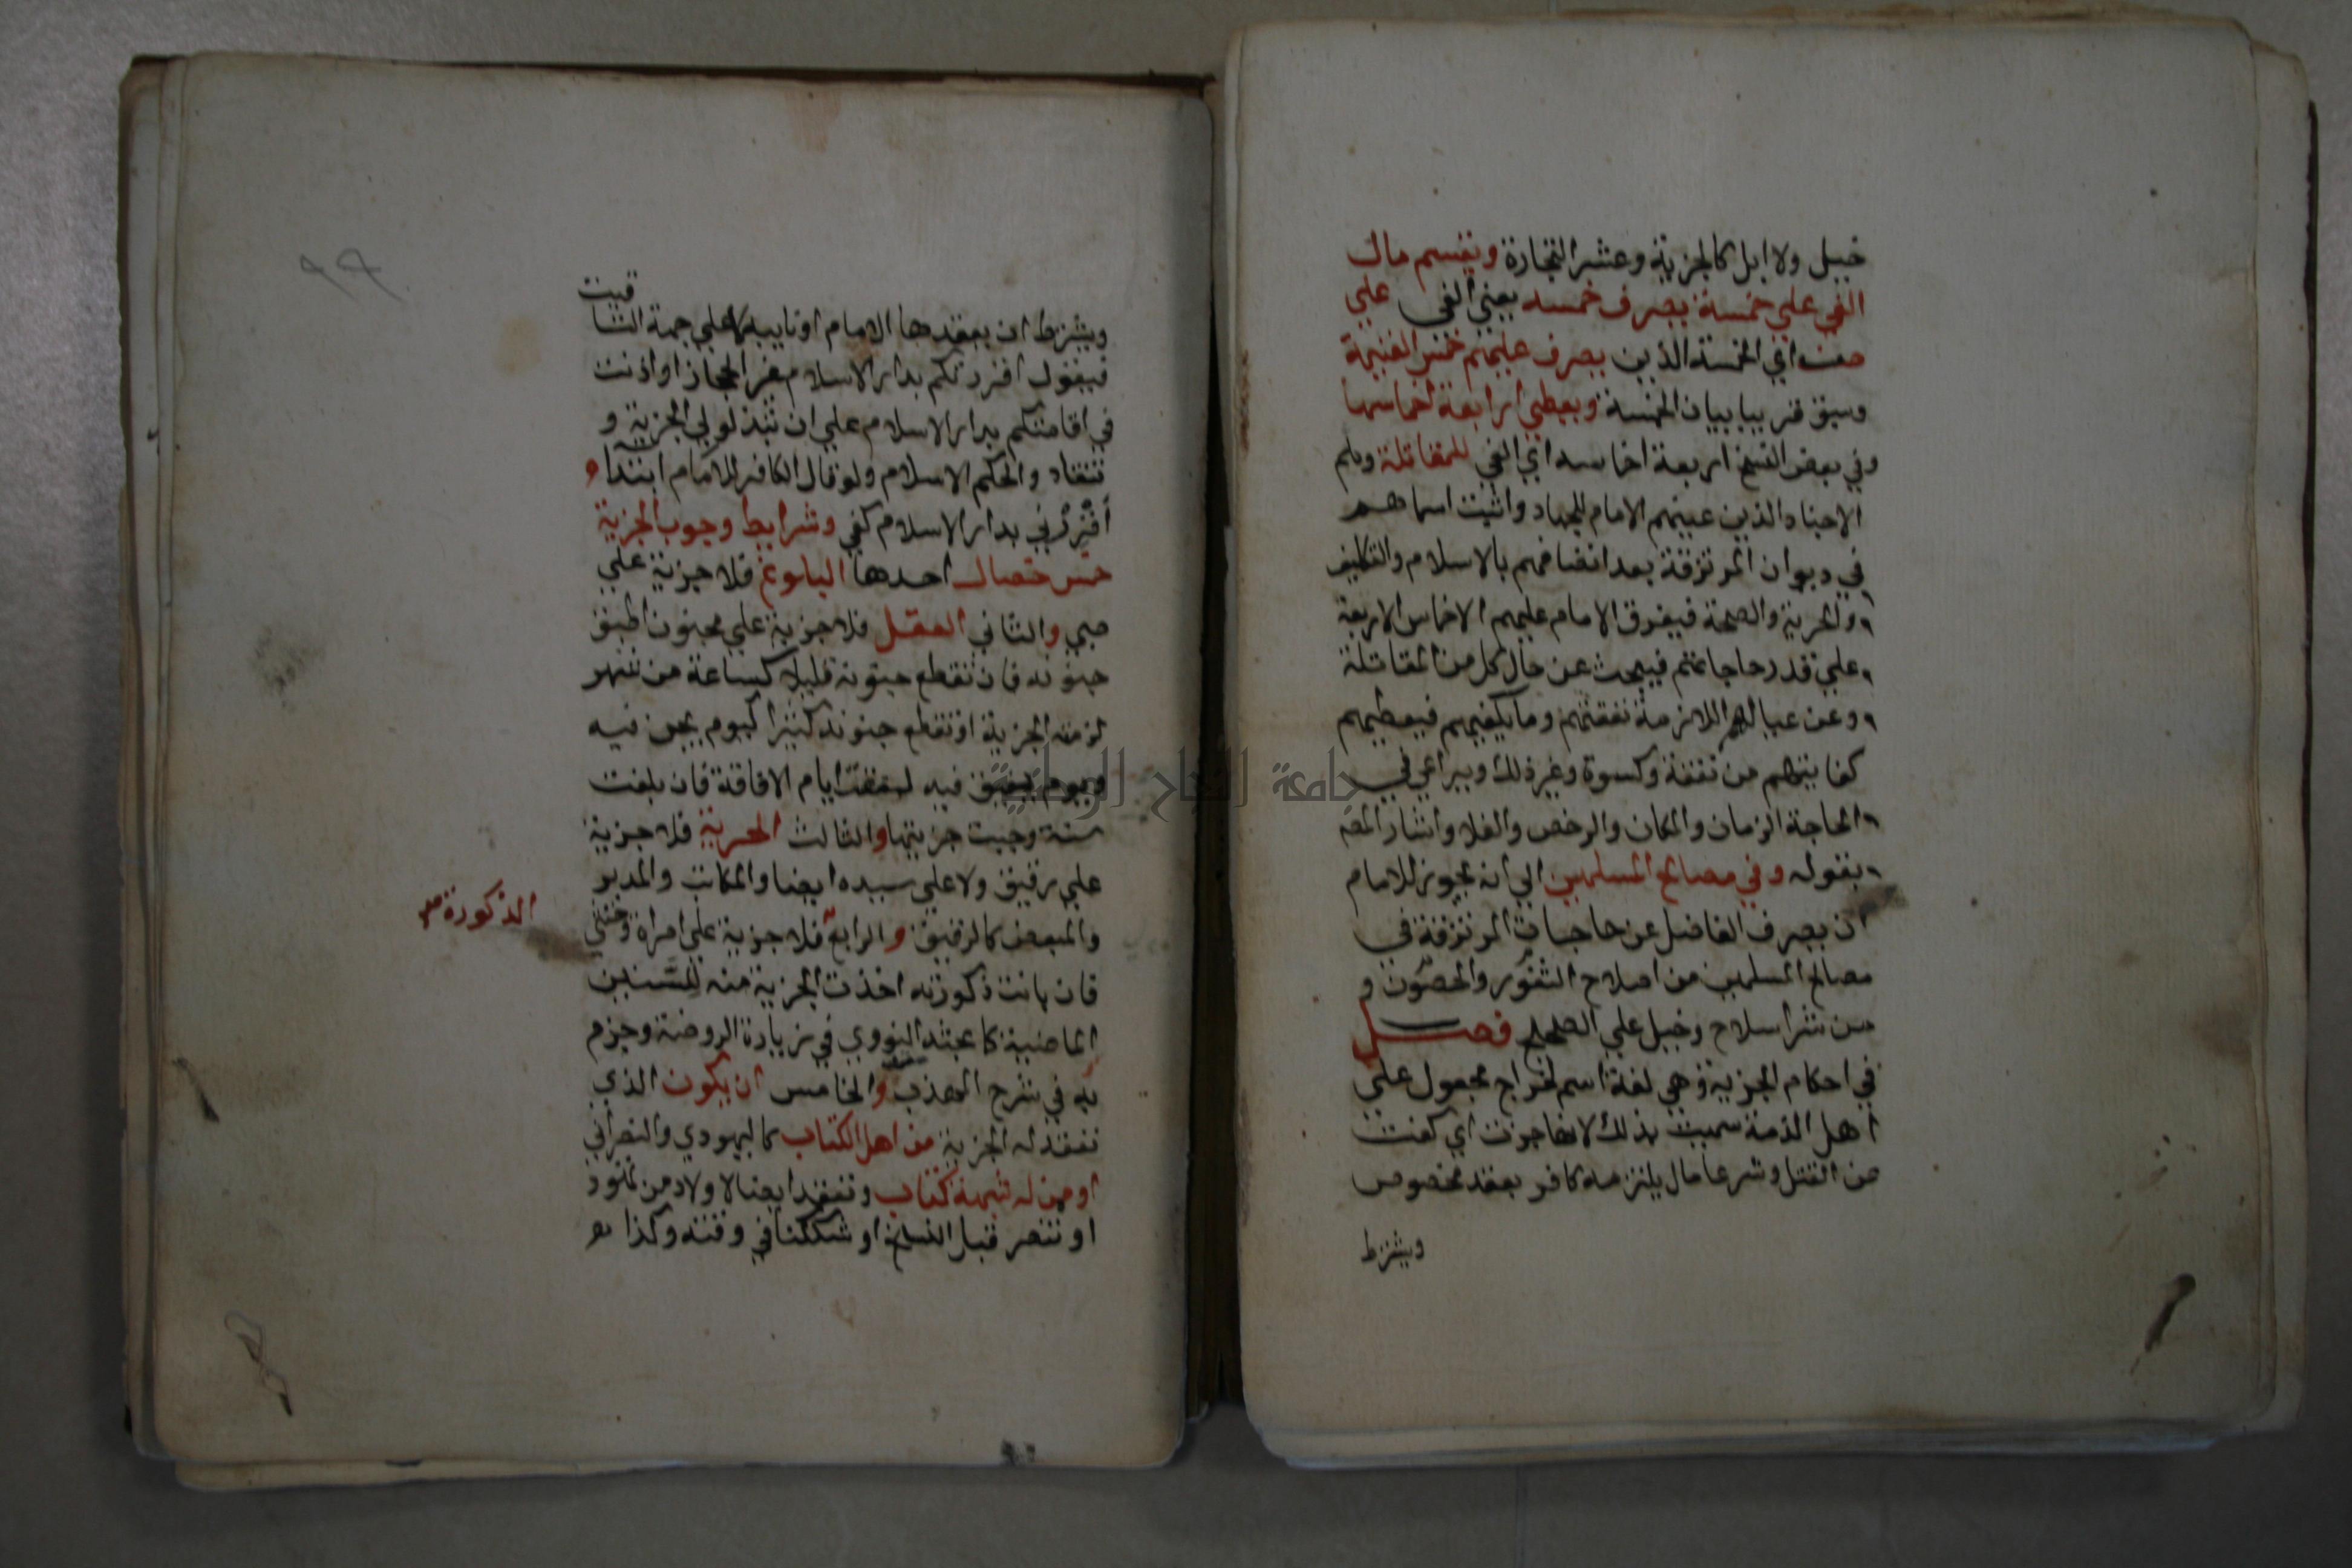 خيل ولا ابل كالجزية وعشر التجارة ويقسم مال
الفي علي خمسة يصرف خمسه يعني الفي علي
من اي الخمسة الذين يصرف عليهم خمس الغنيمة
وسبق قريبا بيان الخمسة ويعطي اربعة اخماسها
وفي بعض النسخ اربعة اخماسه اي الفي للمقاتلة وهم
الاجناد الذين عينهم الامام للجهاد واثبت اسماهم
في ديوان المرتزقة بعد اتصافهم بالاسلام والتكليف
والحرية والصحة فيفرق الامام عليهم الاخماس الاربعة
علي قدر حاجاتهم فيبحث عن حال كل من المقاتلة
وعن عياله اللازمة نفقتهم وما يكفيهم فيعطيهم
كفايتهم من نفقة وكسوة وغير ذلك ويراعي في
الحاجة الزمان والمكان والرخص والغلا واشار المص
بقوله وفي مصالح المسلمين الي انه يجوز للامام
ان يصرف الفاضل عن حاجات المرتزقة في
مصالح المسلمين من اصلاح الثغور والحصون و
من شرا سلاح وخيل علي الصحيح فصل
في احكام الجزية وهي لغة اسم لخراج مجعول علي
اهل الذمة سميت بذلك لانها جزت اي كفت
عن القتل وشرعا مال يلتزمه كافر بعقد مخصوص
ويشترط
٩٩
ويشترط ان يعقدها الامام او نايبه لا علي جهة التاقيت
فيقول اقررتكم بدار الاسلام غير الحجاز او اذنت
في اقامتكم بدار الاسلام علي ان تبذلوا لي الجزية و
تنقادوا لحكم الاسلام ولو قال الكافر للامام ابتداء
اقررني بدار الاسلام كفي وشرايط وجوب الجزية
خمس خصال احدها البلوغ فلا جزية علي
صبي والثاني العقل فلا جزية علي مجنون اطبق
جنونه فان تقطع جنونه قليلا كساعة من شهر
لزمته الجزية او تقطع جنونه كثيرا كيوم يجن فيه
ويوم يفيق فيه لفقت ايام الافاقة فان بلغت
سنة وجبت جزيتها والثالث الحرية فلا جزية
علي رقيق ولا علي سيده ايضا والمكاتب والمدبر
والمبعض كالرقيق والرابع فلا جزية علي امراة وخنثي
الذكورة صح
فان بانت ذكورته اخذت الجزية منه للسنين
الماضية كما بحثه النووي في زيادة الروضة وجزم
به في شرح المهذب والخامس ان يكون الذي
تعقد له الجزية من اهل الكتاب كاليهودي والنصراني
او ممن له شبهة كتاب وتعقد ايضا لاولاد من تهود
او تنصر قبل النسخ او شككنا في وقته وكذا
جامعة النجاح الوطنية